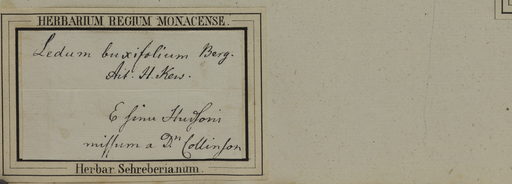 HERBARIUM REGIUM MONACENSE.
Ledum buxifolium Berg.
Ait. H. Kew.
E sinu Hudsoni
missum a Dn Collinson
Herbar. Schreberianum.